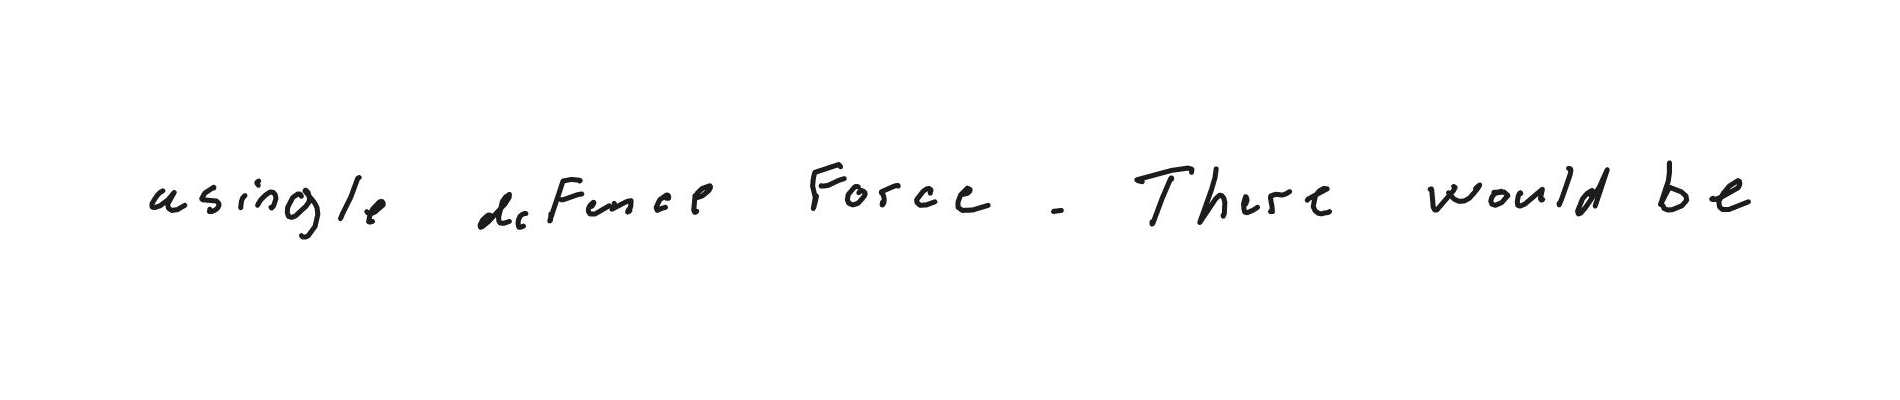 a single defence force. There would be